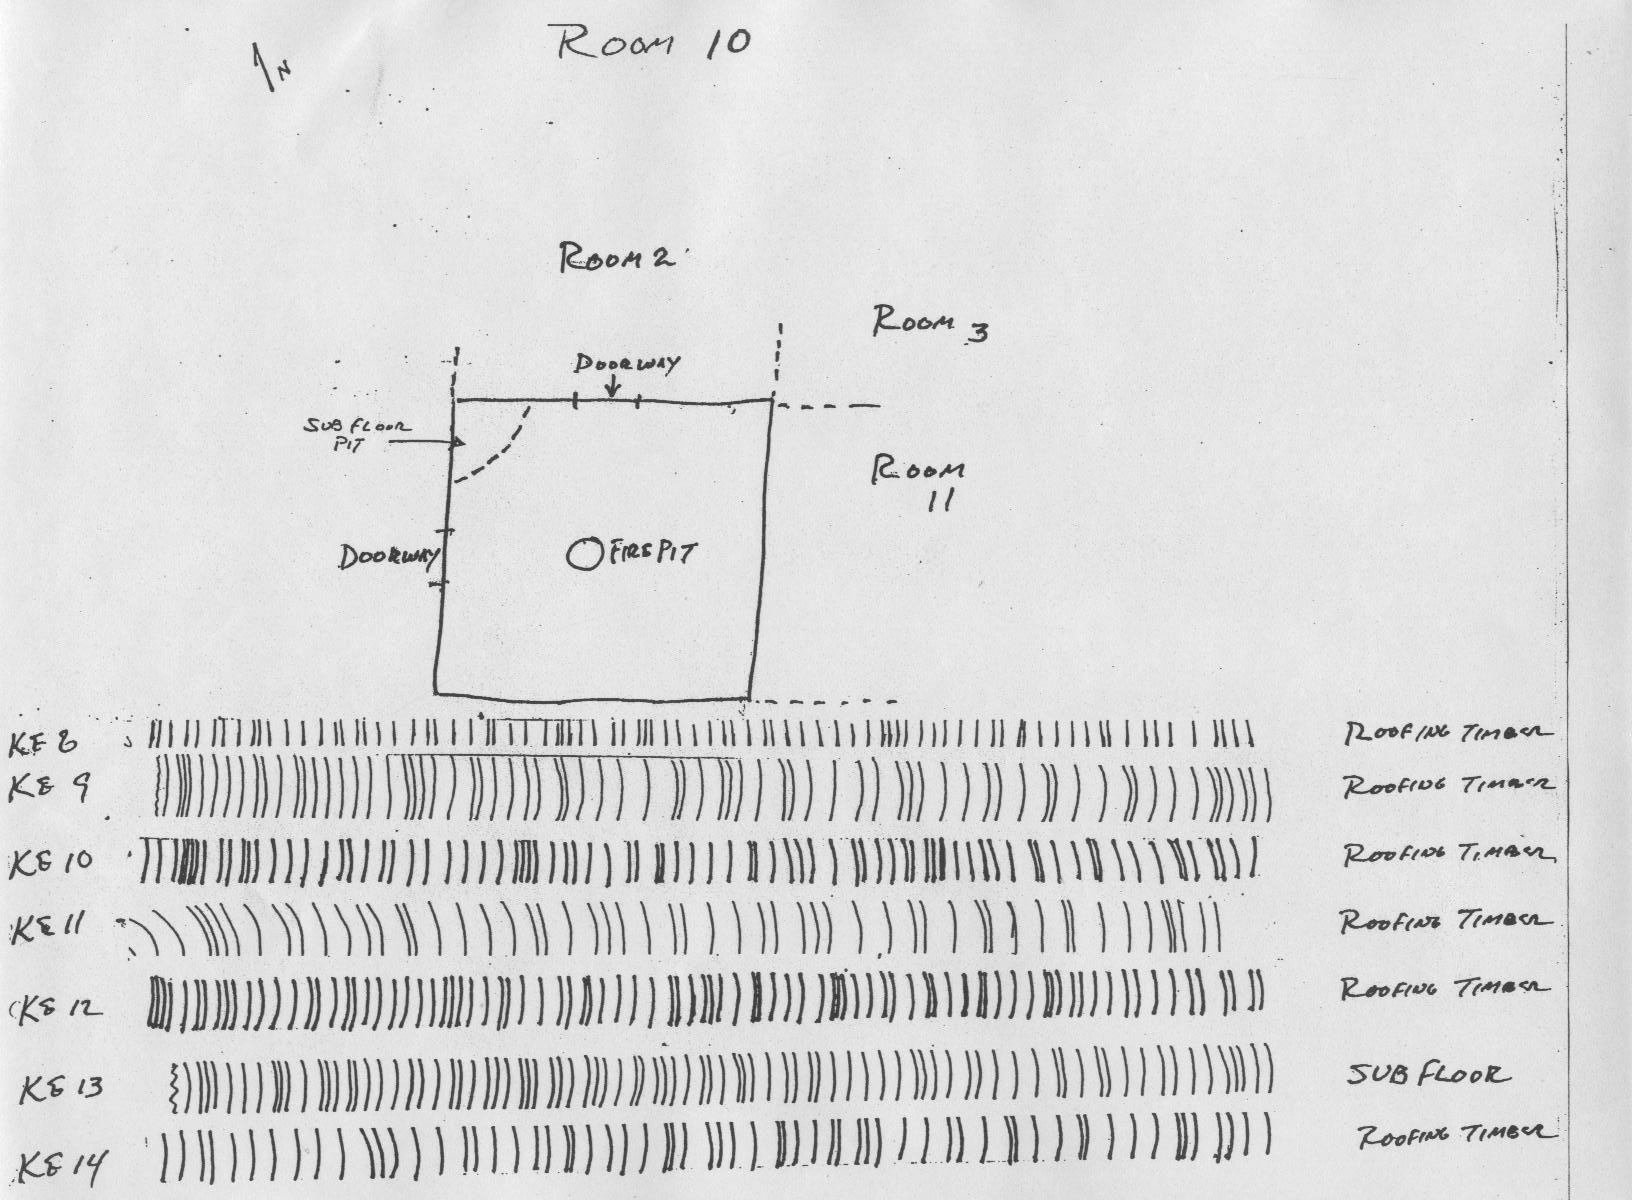 ROOM 10
N
ROOM 2
ROOM 3
DOORWAY
SUB FLOOR
PIT
ROOM
11
DOORWAY
FIRE PIT
KE 8 ROOFING TIMBER
KE 9 ROOFING TIMBER
KE 10 ROOFING TIMBER
KE 11 ROOFING TIMBER
KE 12 ROOFING TIMBER
KE 13 SUB FLOOR
KE 14 ROOFING TIMBER